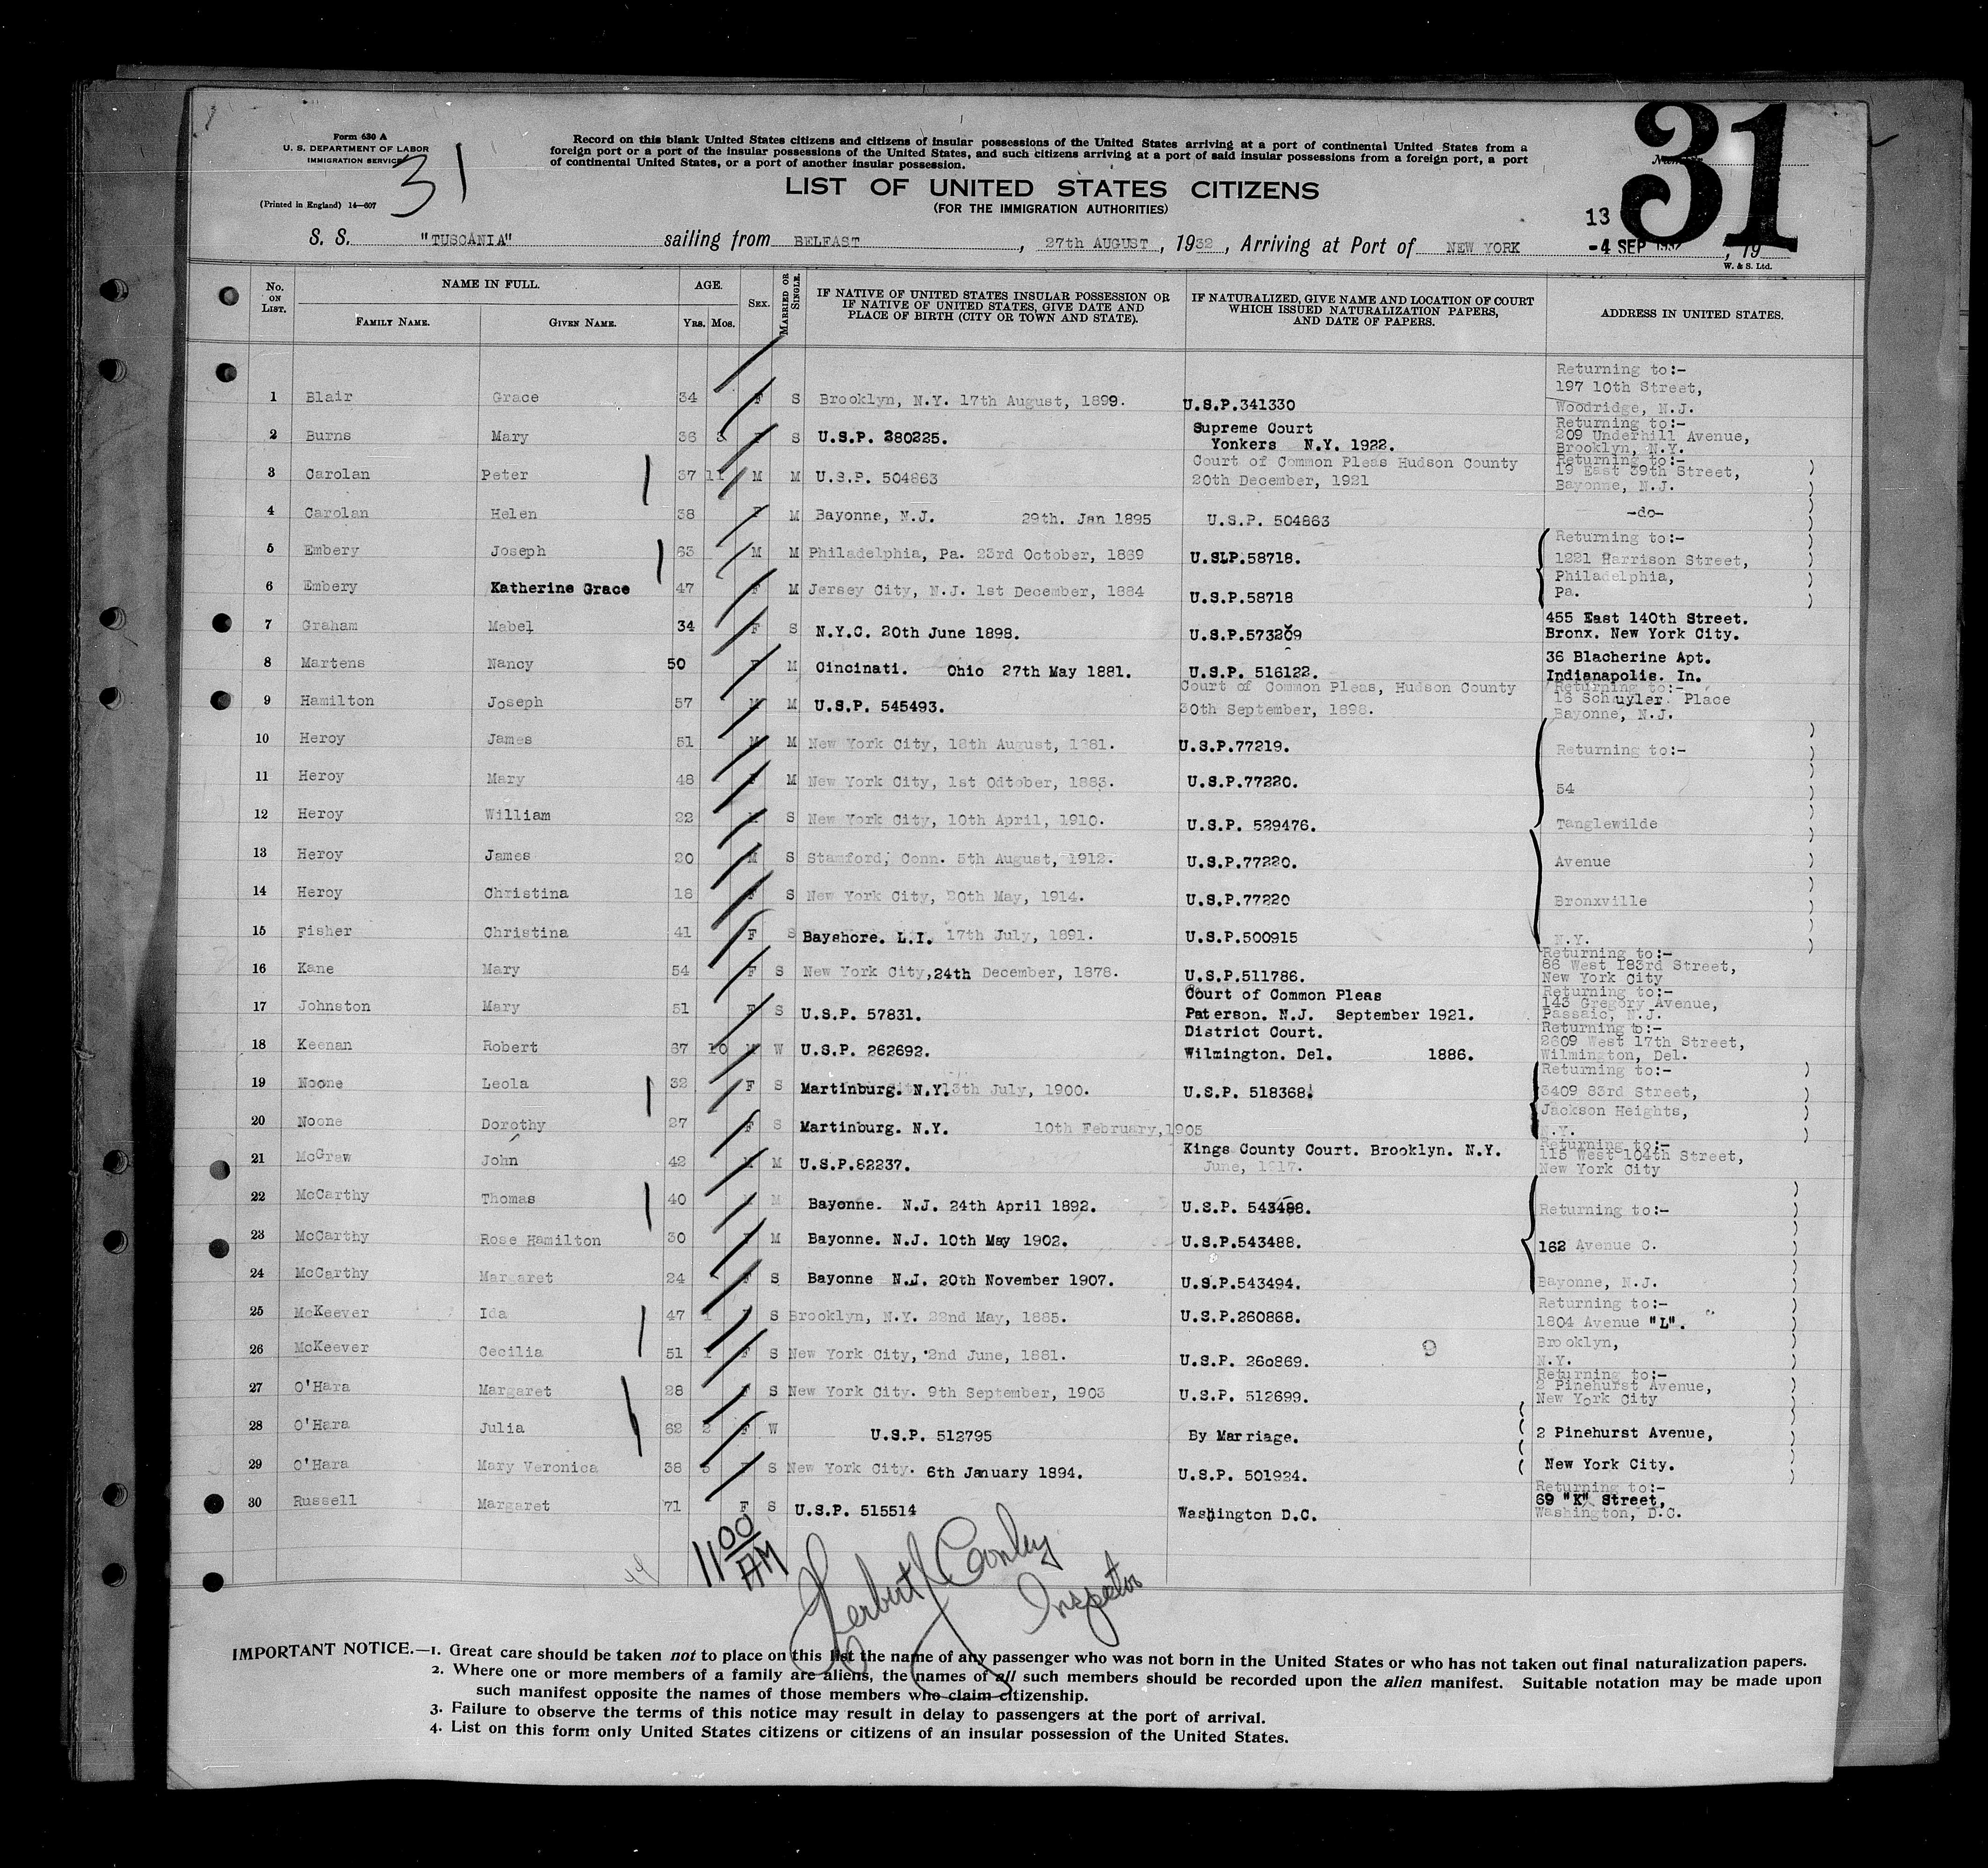 Form 630 A
U. S. DEPARTMENT OF LABOR
IMMIGRATION SERVICE
31
(Printed in England) 14—607
Record on this blank United States citizens and citizens of insular possessions of the United States arriving at a port of continental United States from a
foreign port or a port of the insular possessions of the United States, and such citizens arriving at a port of said insular possessions from a foreign port, a port
of continental United States, or a port of another insular possession.
31
LIST OF UNITED STATES CITIZENS
(FOR THE IMMIGRATION AUTHORITIES)
13
S. S. "TUSCANIA" sailing from BELFAST, 27th AUGUST, 1932, Arriving at Port of NEW YORK -4 SEP 1932, 19
W. & S. Ltd.
No. ON LIST. NAME IN FULL. FAMILY NAME. GIVEN NAME. AGE. YRS. MOS. SEX. MARRIED OR SINGLE. IF NATIVE OF UNITED STATES INSULAR POSSESSION OR IF NATIVE OF UNITED STATES, GIVE DATE AND PLACE OF BIRTH (CITY OR TOWN AND STATE). IF NATURALIZED, GIVE NAME AND LOCATION OF COURT WHICH ISSUED NATURALIZATION PAPERS, AND DATE OF PAPERS. ADDRESS IN UNITED STATES.
1 Blair Grace 34 F S Brooklyn, N.Y. 17th August, 1899. U.S.P.341330 Returning to:- 197 10th Street, Woodridge, N.J.
2 Burns Mary 36 F S U.S.P. 380225. Supreme Court Yonkers N.Y. 1922. Returning to:- 209 Underhill Avenue, Brooklyn, N.Y.
3 Carolan Peter 37 11 M M U.S.P. 504863 Court of Common Pleas Hudson County 20th December, 1921 Returning to:- 19 East 39th Street, Bayonne, N.J.
4 Carolan Helen 38 F M Bayonne, N.J. 29th. Jan 1895 U.S.P. 504863 -do-
5 Embery Joseph 63 M M Philadelphia, Pa. 23rd October, 1869 U.SLP.58718. Returning to:- 1221 Harrison Street,
6 Embery Katherine Grace 47 F M Jersey City, N.J. 1st December, 1884 U.S.P.58718 Philadelphia, Pa.
7 Graham Mabel 34 F S N.Y.C. 20th June 1898. U.S.P.573209 455 East 140th Street. Bronx. New York City.
8 Martens Nancy 50 F M Cincinati. Ohio 27th May 1881. U.S.P. 516122. 36 Blacherine Apt. Indianapolis. In.
9 Hamilton Joseph 57 M M U.S.P. 545493. Court of Common Pleas, Hudson County 30th September, 1898. Returning to:- 16 Schuyler Place Bayonne, N.J.
10 Heroy James 51 M M New York City, 18th August, 1881. U.S.P.77219. Returning to:-
11 Heroy Mary 48 F M New York City, 1st Odtober, 1883. U.S.P.77220. 54
12 Heroy William 22 M S New York City, 10th April, 1910. U.S.P. 529476. Tanglewilde
13 Heroy James 20 M S Stamford, Conn. 5th August, 1912. U.S.P.77220. Avenue
14 Heroy Christina 18 F S New York City, 20th May, 1914. U.S.P.77220 Bronxville
15 Fisher Christina 41 F S Bayshore. L.I. 17th July, 1891. U.S.P.500915 N.Y.
16 Kane Mary 54 F S New York City,24th December, 1878. U.S.P.511786. Returning to:- 86 West 183rd Street, New York City
17 Johnston Mary 51 F S U.S.P. 57831. Court of Common Pleas Paterson. N.J. September 1921. Returning to:- 143 Gregory Avenue, Passaic, N.J.
18 Keenan Robert 67 10 M W U.S.P. 262692. District Court. Wilmington. Del. 1886. Returning to:- 2609 West 17th Street, Wilmington, Del.
19 Noone Leola 32 F S Martinburg. N.Y. 13th July, 1900. U.S.P. 518368. Returning to:- 3409 83rd Street,
20 Noone Dorothy 27 F S Martinburg. N.Y. 10th February,1905 Jackson Heights, N.Y.
21 McGraw John 42 M M U.S.P.82237. Kings County Court. Brooklyn. N.Y. June, 1917. Returning to:- 115 West 104th Street, New York City
22 McCarthy Thomas 40 M M Bayonne. N.J. 24th April 1892. U.S.P. 543488. Returning to:-
23 McCarthy Rose Hamilton 30 F M Bayonne. N.J. 10th May 1902. U.S.P.543488. 162 Avenue C.
24 McCarthy Margaret 24 F S Bayonne N.J. 20th November 1907. U.S.P.543494. Bayonne, N.J.
25 McKeever Ida 47 1 F S Brooklyn, N.Y. 22nd May, 1885. U.S.P.260868. Returning to:- 1804 Avenue "L".
26 McKeever Cecilia 51 1 F S New York City, 2nd June, 1881. U.S.P. 260869. 9 Brooklyn, N.Y.
27 O'Hara Margaret 28 F S New York City. 9th September, 1903 U.S.P. 512699. Returning to:- 2 Pinehurst Avenue, New York City
28 O'Hara Julia 62 2 F W U.S.P. 512795 By Marriage. 2 Pinehurst Avenue,
29 O'Hara Mary Veronica 38 F S New York City. 6th January 1894. U.S.P. 501924. New York City.
30 Russell Margaret 71 F S U.S.P. 515514 Washington D.C. Returning to:- 69 "K" Street, Washington, D.C.
11 00 AM
Herbert J Conley
Inspector
IMPORTANT NOTICE.—1. Great care should be taken not to place on this list the name of any passenger who was not born in the United States or who has not taken out final naturalization papers.
2. Where one or more members of a family are aliens, the names of all such members should be recorded upon the alien manifest. Suitable notation may be made upon
such manifest opposite the names of those members who claim citizenship.
3. Failure to observe the terms of this notice may result in delay to passengers at the port of arrival.
4. List on this form only United States citizens or citizens of an insular possession of the United States.